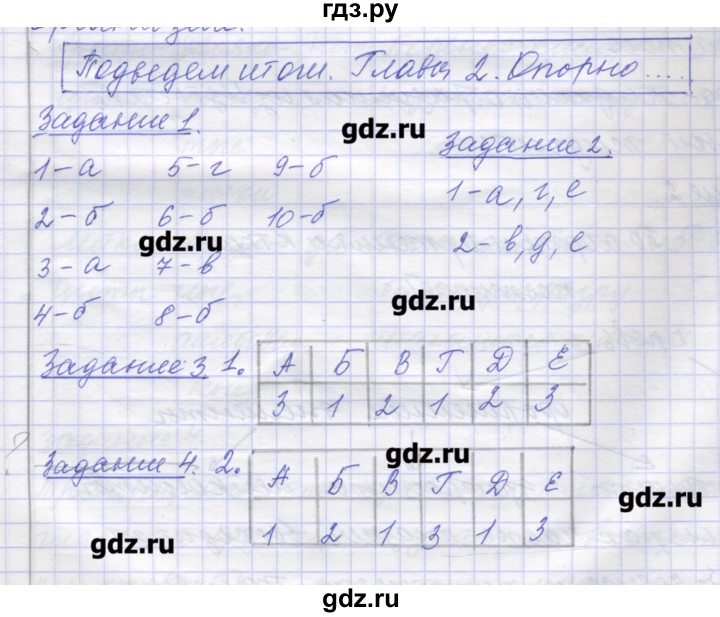 гдз.ру
Подведем итоги. Глава 2. Опорно....
Задание 1.
1-а 5-г 9-б
2-б 6-б 10-б
3-а 7-в
4-б 8-б
gdz.ru
Задание 2.
1-а, г, е
2-в, д, е
gdz.ru
gdz.ru
Задание 3 1.
А Б В Г Д Е
3 1 2 1 2 3
gdz.ru
? Задание 4. 2.
А Б В Г Д Е
1 2 1 3 1 3
gdz.ru
gdz.ru
gdz.ru